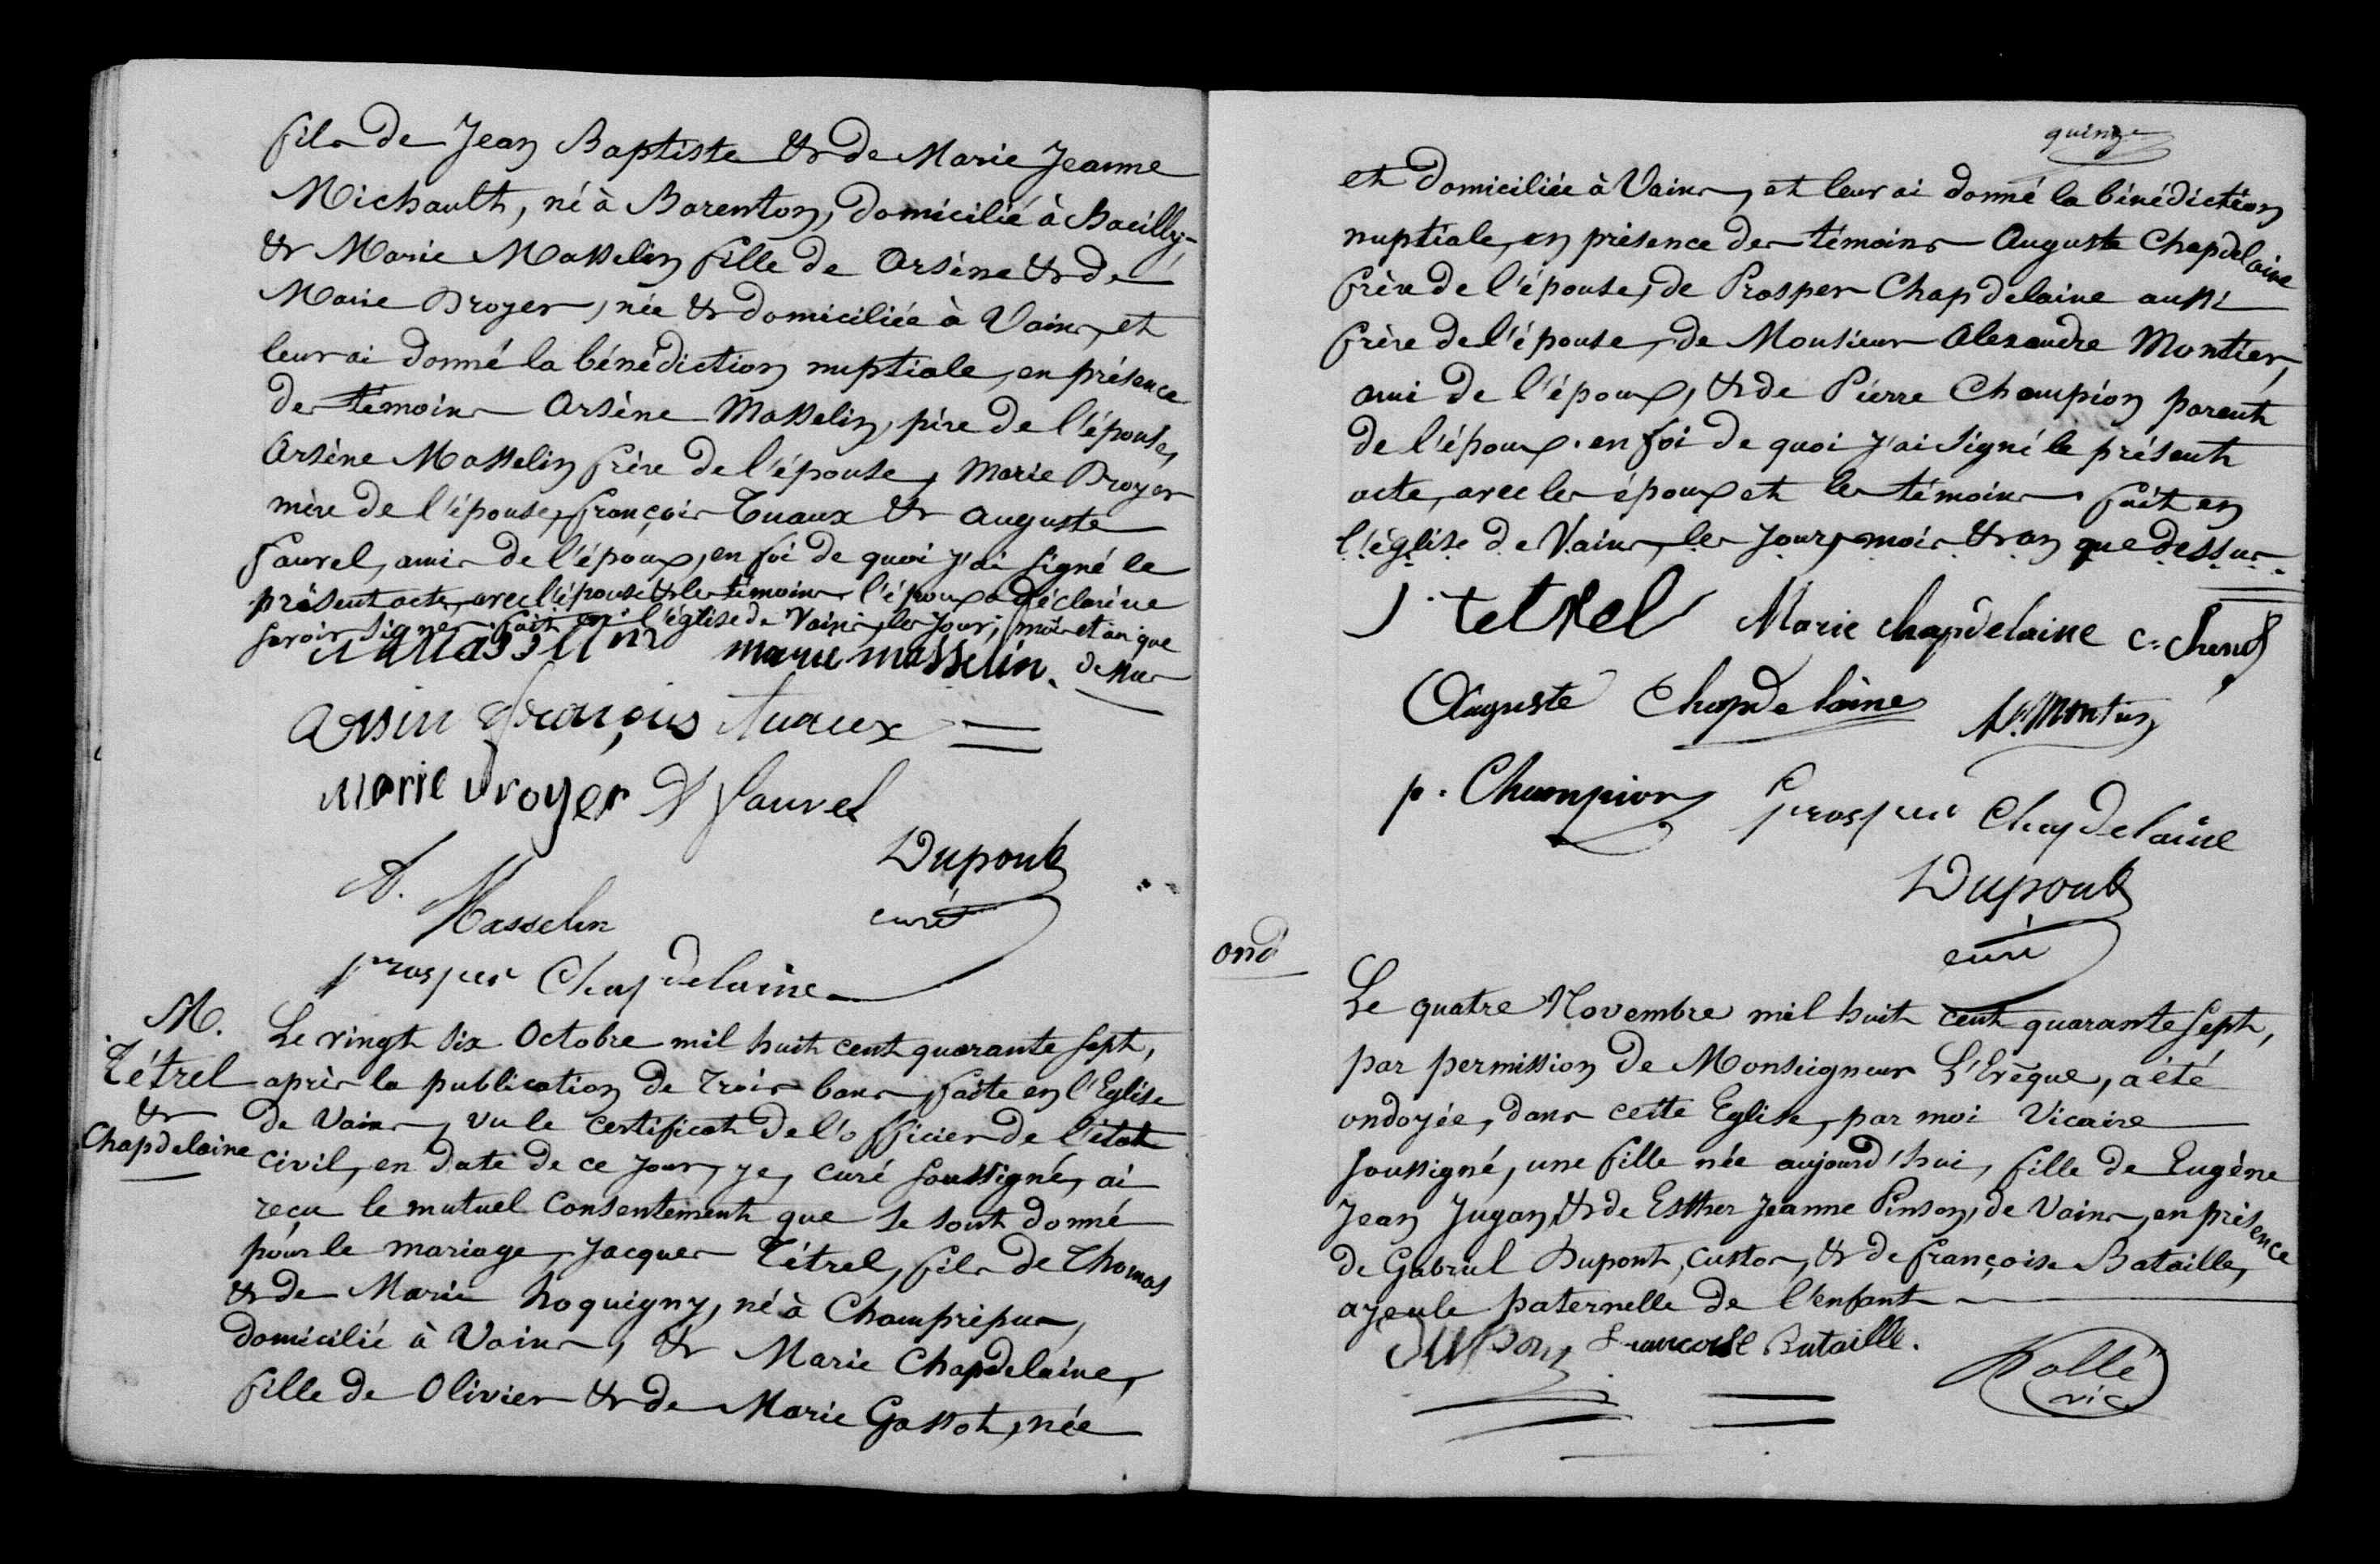 fils de Jean Baptiste & de Marie Jeanne
Michault, né à Barenton, domicilié à Bacilly,
& Marie Masselin fille de Arsène & de
Marie Droyer, née & domiciliée à Vains, et
leur ai donné la bénédiction nuptiale, en présence
des témoins Arsène Masselin, père de l'épouse,
Arsène Masselin frère de l'épouse, Marie Droyer
mère de l'épouse, françois Tuaux & Auguste
fauvel, amis de l'époux, en foi de quoi j'ai signé le
présent acte, avec l'épouse & les témoins, l'époux a déclaré ne
savoir signer. fait en l'église de Vains, les jour, mois et an que
marie masselin. dessus
françois tuaux
Marie droyer fauvel
Dupont
A. Masselin
curé
prosper Chapdelaine
M.
Tétrel
&
Chapdelaine
Le vingt six Octobre mil huit cent quarante sept,
après la publication de trois bans, faite en l'Eglise
de Vains, vu le certificat de l'officier de l'état
civil, en date de ce jour, je, curé soussigné, ai
reçu le mutuel consentement que se sont donné
pour le mariage, Jacques Tétrel, fils de Thomas
& de Marie hoquigny, né à Champrépus,
domicilié à Vains, & Marie Chapdelaine,
fille de Olivier & de Marie Gassot, née
quinze
et domiciliée à Vains, et leur ai donné la bénédiction
nuptiale, en présence des témoins Auguste Chapdelaine
frère de l'épouse, de Prosper Chapdelaine aussi
frère de l'épouse, de Monsieur Alexandre Montier,
ami de l'époux, & de Pierre Champion parent
de l'époux. en foi de quoi j'ai signé le présent
acte, avec les époux et les témoins. fait en
l'église de Vains, les jour, mois & an que dessus.
J. tetrel Marie chapdelaine
Auguste Chapdelaine
p. Champion prosper Chapdelaine
Dupont
curé
ond
Le quatre Novembre mil huit cent quarante sept,
par permission de Monseigneur L'Evêque, a été
ondoyée, dans cette Eglise, par moi Vicaire
soussigné, une fille née aujourd'hui, fille de Eugène
Jean Jugan, & de Esther Jeanne Pinson, de Vains, en présence
de Gabriel Dupont, custos, & de françoise Bataille,
ayeule paternelle de l'enfant
Dupont françoise Bataille.
vic.